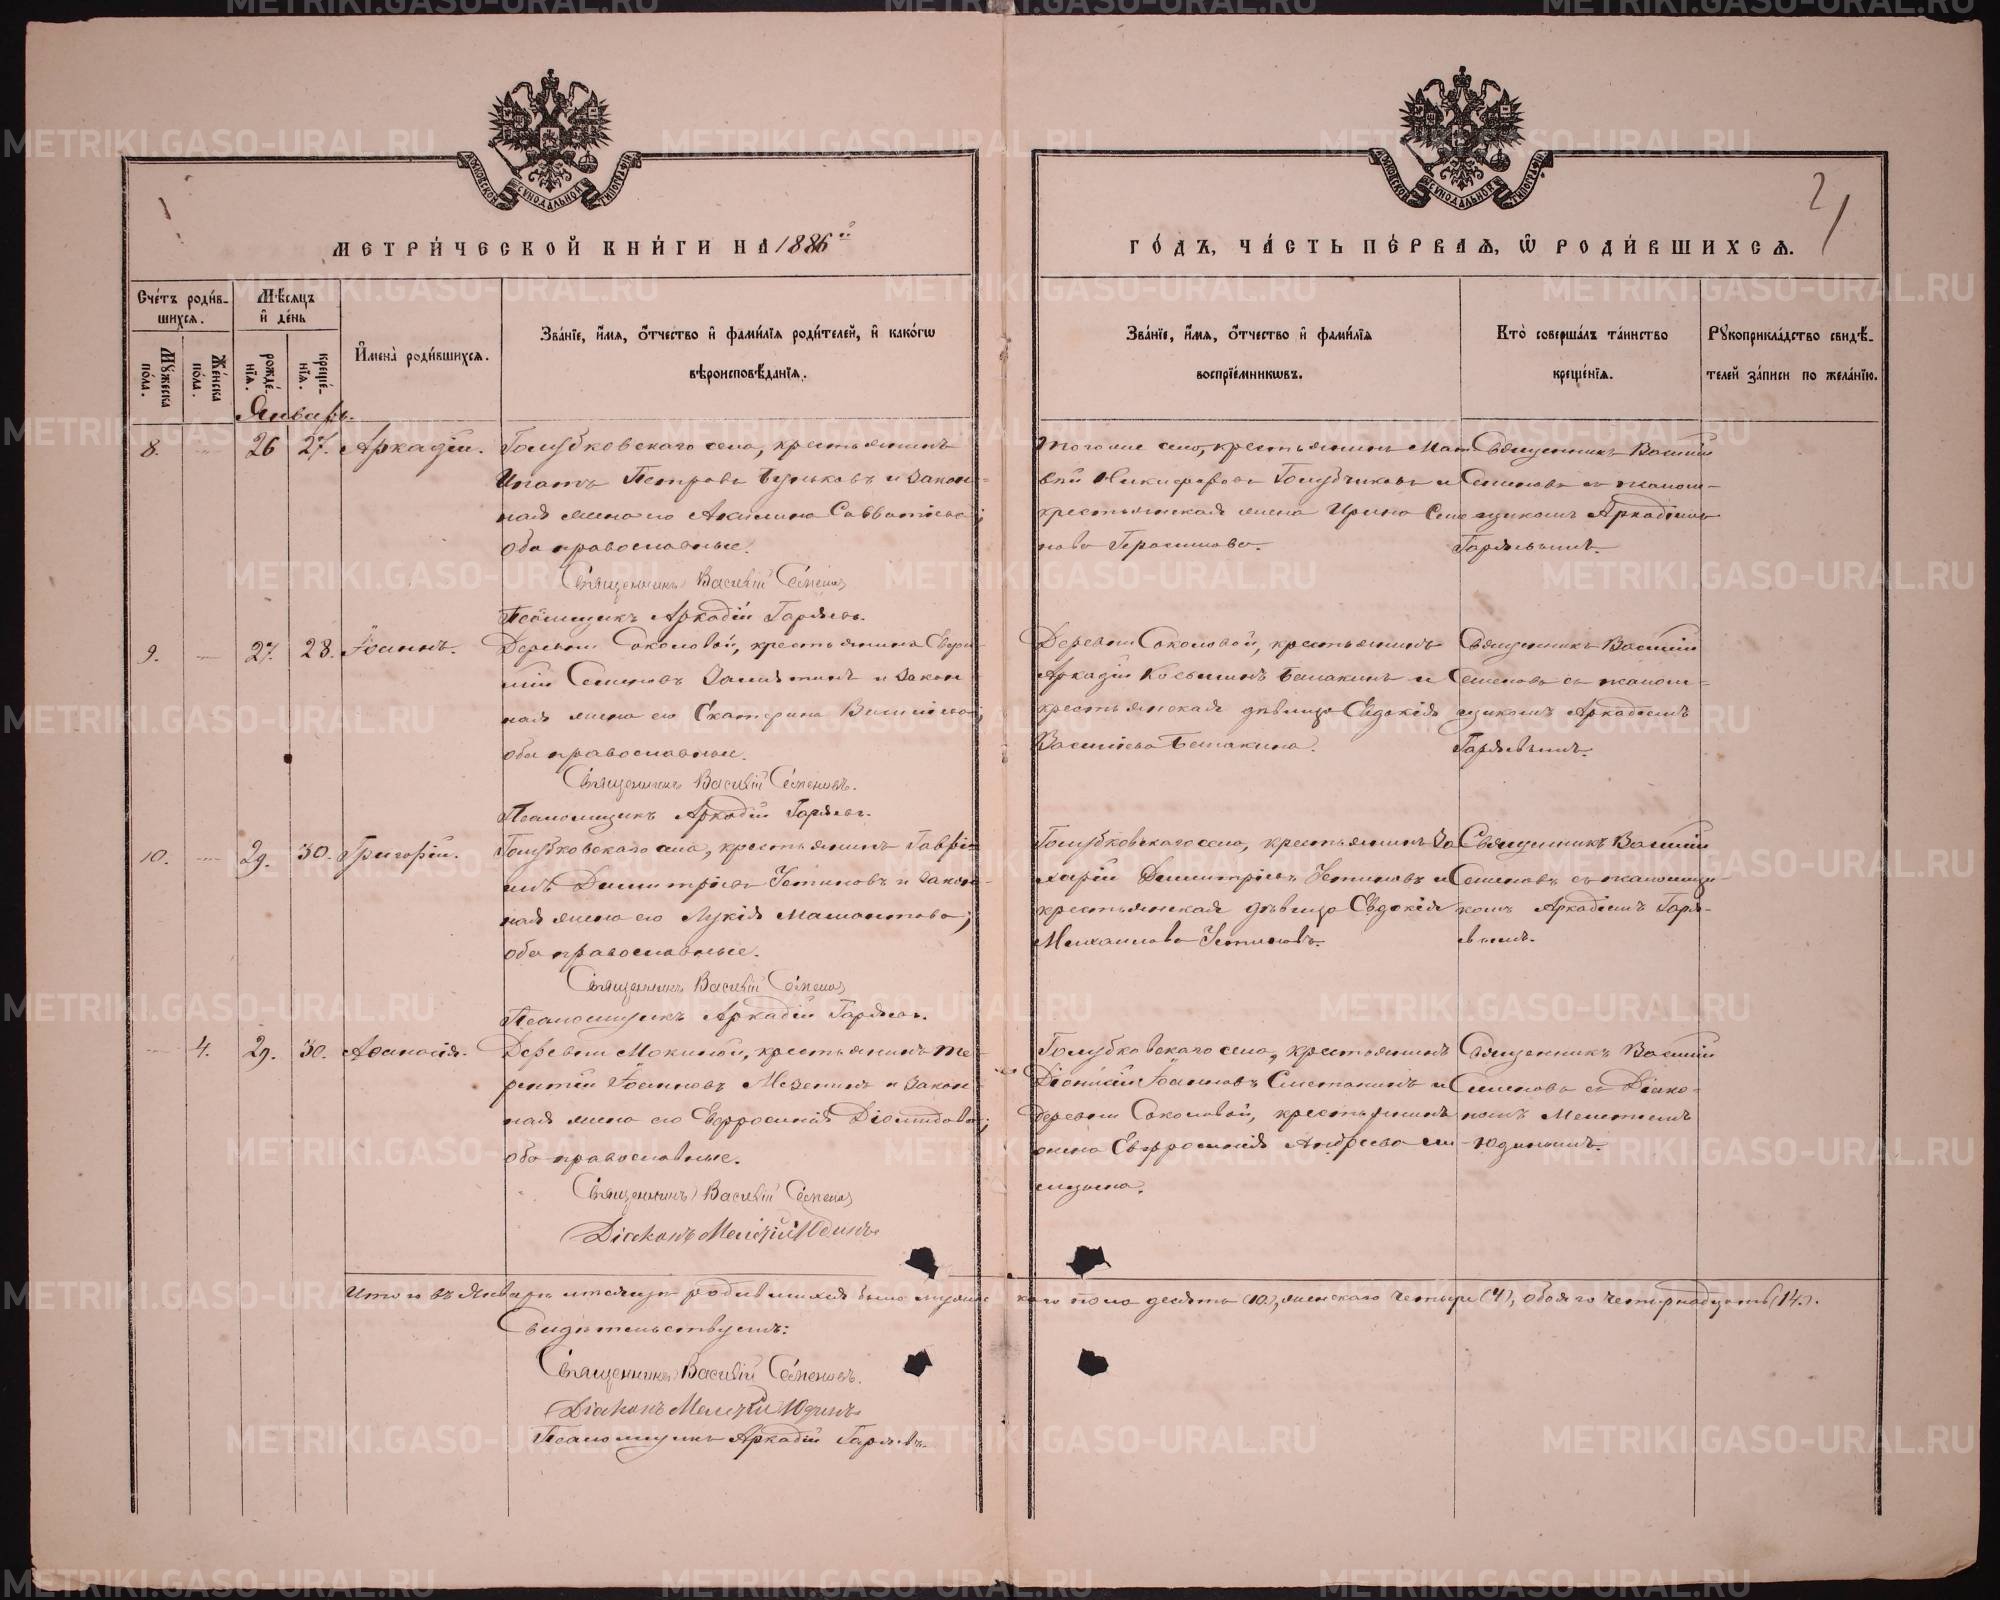 МЕТРИ́ЧЕСКОЙ КНИ́ГИ НА 1886й
ГО́ДЪ, ЧА́СТЬ ПЕ́РВАѦ, Ѿ РОДИ́ВШИХСѦ.
2
Сче́тъ роди́в-
шихсѧ.
Мѣ́сѧцъ
и҆ де́нь
Мꙋ́жеска
по́ла.
Же́нска
по́ла.
рожде́-
нїѧ.
креще́-
нїѧ.
И҆мена̀ роди́вшихсѧ.
Зва́нїе, и҆́мѧ, ѻ҆́тчество и҆ фами́лїѧ роди́телей, и҆ како́гѡ
вѣроисповѣ́данїѧ.
Зва́нїе, и҆́мѧ, ѻ҆́тчество и҆ фами́лїѧ
воспрїе́мникѡвъ.
Кто̀ соверша́лъ та́инство
креще́нїѧ.
Рꙋкоприкла́дство свидѣ́-
телей за́писи по жела́нїю.
Январь.
8. 26 27. Аркадій.
Голубковскаго села, крестьянинъ
Ипатъ Петровъ Буньковъ и закон-
ная жена его Акилина Савватіева;
оба православные.
Священникъ Василій Семеновъ
Псаломщикъ Аркадій Гаряевъ.
тогоже села, крестьянинъ Мат
вей Никифоровъ Голубчиковъ и
крестьянская жена Ирина Семе
нова Герасимова.
Священникъ Василій
Семеновъ съ псалом-
щикомъ Аркадіемъ
Гаряевымъ.
9. 27. 28. Іоаннъ.
Деревни Соколовой, крестьянинъ
Семеновъ Замятинъ и закон
ная жена его Екатерина Васильева;
оба православные.
Священникъ Василій Семеновъ.
Псаломщикъ Аркадій Гаряевъ.
Деревни Соколовой, крестьянинъ
Аркадій Косьминъ и
крестьянская дѣвица Евдокія
Васильева
Священникъ Василій
Семеновъ съ псалом-
щикомъ Аркадіемъ
Гаряевымъ.
10. 29. 30. Григорій.
Голубковскаго села, крестьянинъ Гаврі-
илъ Димитріевъ Устиновъ и закон-
ная жена его Лукія Мамонтова;
оба православные.
Священникъ Василій Семеновъ
Псаломщикъ Аркадій Гаряевъ.
Голубковскаго села, крестьянинъ За
харій Димитріевъ Устиновъ и
крестьянская дѣвица Евдокія
Михаилова Устинова.
Священникъ Василій
Семеновъ съ псаломщи-
комъ Аркадіемъ Гаря-
евымъ.
4. 29. 30. Аѳанасія.
Деревни Мокиной, крестьянинъ Те-
рентій Іоанновъ Мезенинъ и закон-
ная жена его Евфросинія Діомидова;
оба православные.
Священникъ Василій Семеновъ
Діаконъ Мелетій Юдинъ
Голубковскаго села, крестьянинъ
Діонисій Іоанновъ Сметанинъ и
деревни Соколовой, крестьянина
жена Евфросинія Андреева
Священникъ Василій
Семеновъ съ Діако-
номъ Мелетіемъ
Юдинымъ.
Итого въ Январѣ мѣсяцѣ родившихся было мужес
каго пола десять (10), женскаго четыре (4), обоего четырнадцать (14).
Свидѣтельствуемъ:
Священникъ Василій Семеновъ.
Діаконъ Мелетій Юдинъ
Псаломщикъ Аркадій Гаряевъ.